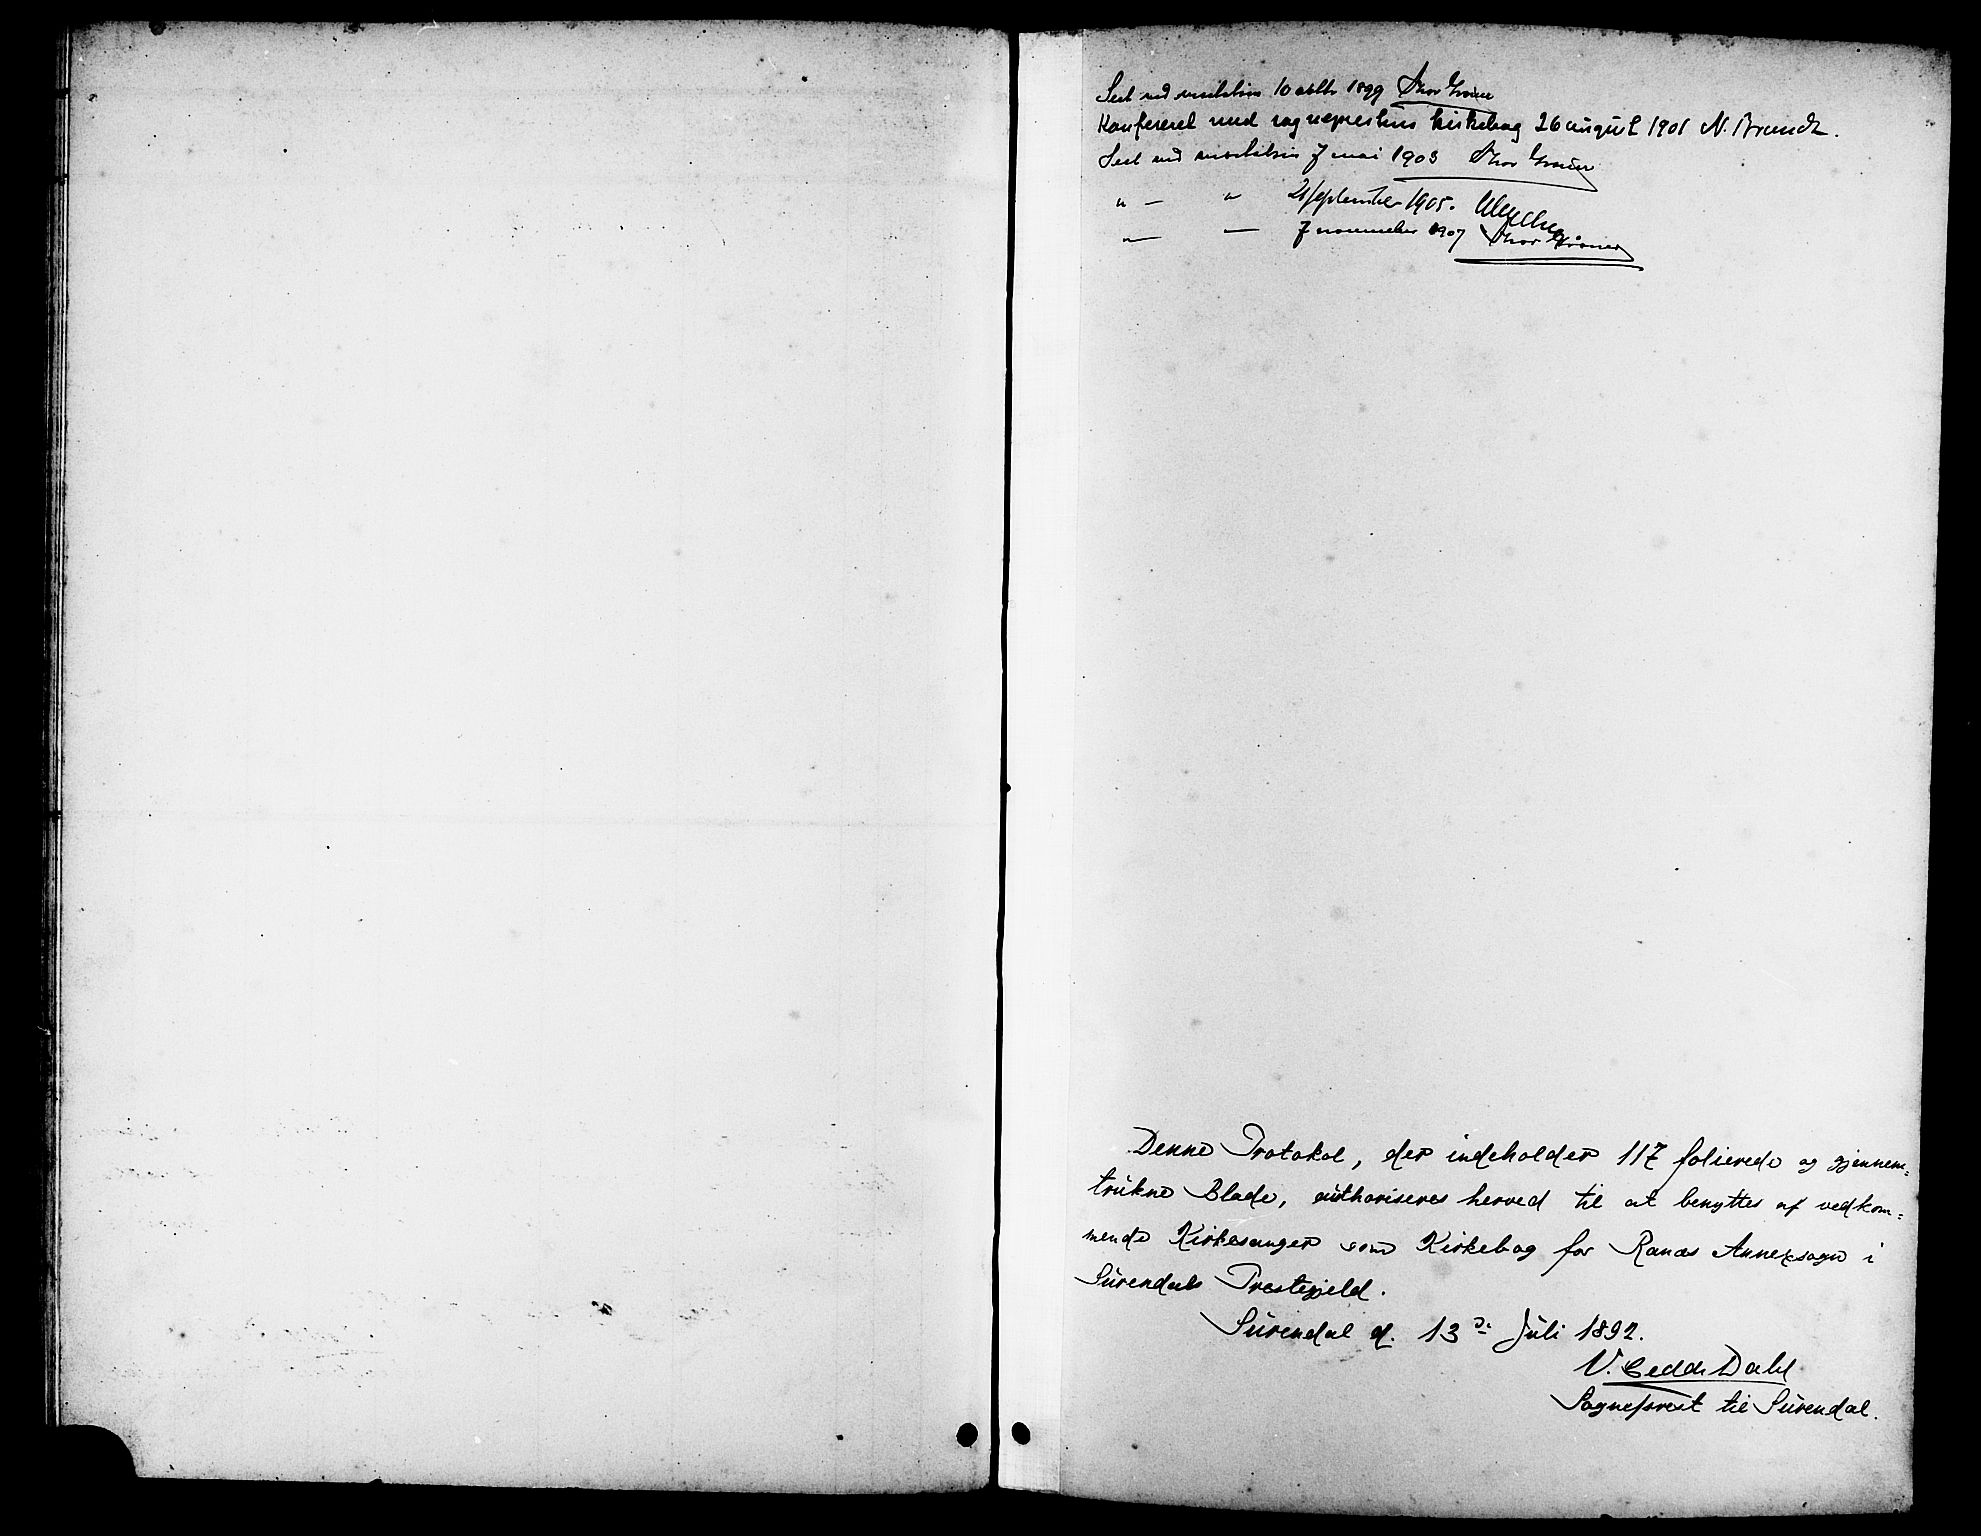 Seet ved visitatsen 10 oktbr 1899 Thor Grøner
Konfereret med sogneprestens kirkebog 26 august 1901 N. Brandt.
Seet ved visitatsen 7 mai 1903 Thor Grøner
" — " 21 september 1905.
" — — 7 november 1907 Thor Grøner
Denne Protokol, der indeholder 117 folierede og gjennem-
trukne Blade, authoriseres herved til at benyttes af vedkom-
mende Kirkesanger som Kirkebog for Ranæs Annexsogn i
Surendals Prestegjeld.
Surendal d. 13de Juli 1892.
V. Gedde Dahl
Sogneprest til Surendal.